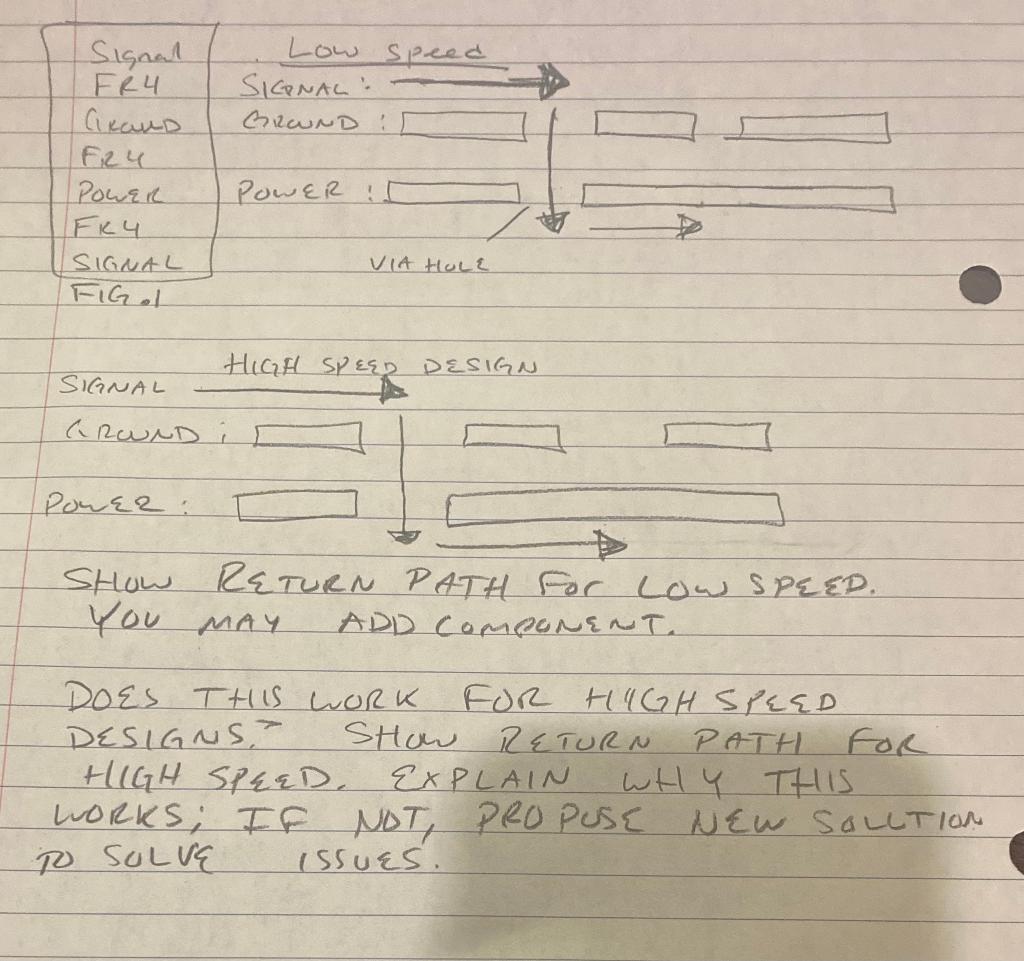 Signal
FR4
Ground
FR4
POWER
FR4
SIGNAL
FIG.1
Low Speed
SIGNAL:
GROUND:
POWER:
VIA HOLE
HIGH SPEED DESIGN
SIGNAL
GROUND:
POWER:
SHOW RETURN PATH FOR LOW SPEED.
YOU MAY ADD COMPONENT.
DOES THIS WORK FOR HIGH SPEED
DESIGNS? SHOW RETURN PATH FOR
HIGH SPEED. EXPLAIN WHY THIS
WORKS; IF NOT, PROPOSE NEW SOLUTION
TO SOLVE ISSUES.